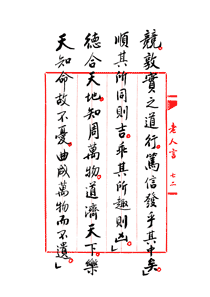 競敦實之道行篤信發乎其中矣」
順其所同則吉乖其所趣則凶」
德合天地知周萬物道濟天下樂
天知命故不憂曲成萬物而不遺」
老人言
七二